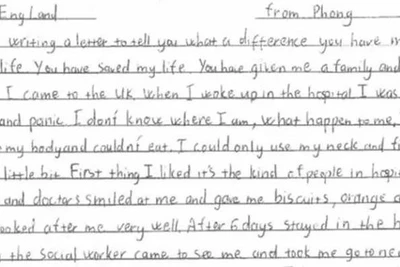 England from Phong
writing a letter to tell you what a difference you have m
life. You have saved my life. You have given me a family and
I came to the UK. When I woke up in the hospital I was
and panic. I don't know where I am, what happen to me,
my body and couldn't eat. I could only use my neck and f
little bit. First thing I liked it's the kind of people in hospi
and doctors smiled at me and gave me biscuits, orange
ooked after me very well. After 6 days stayed in the h
the social worker came to see me and took me go to ne